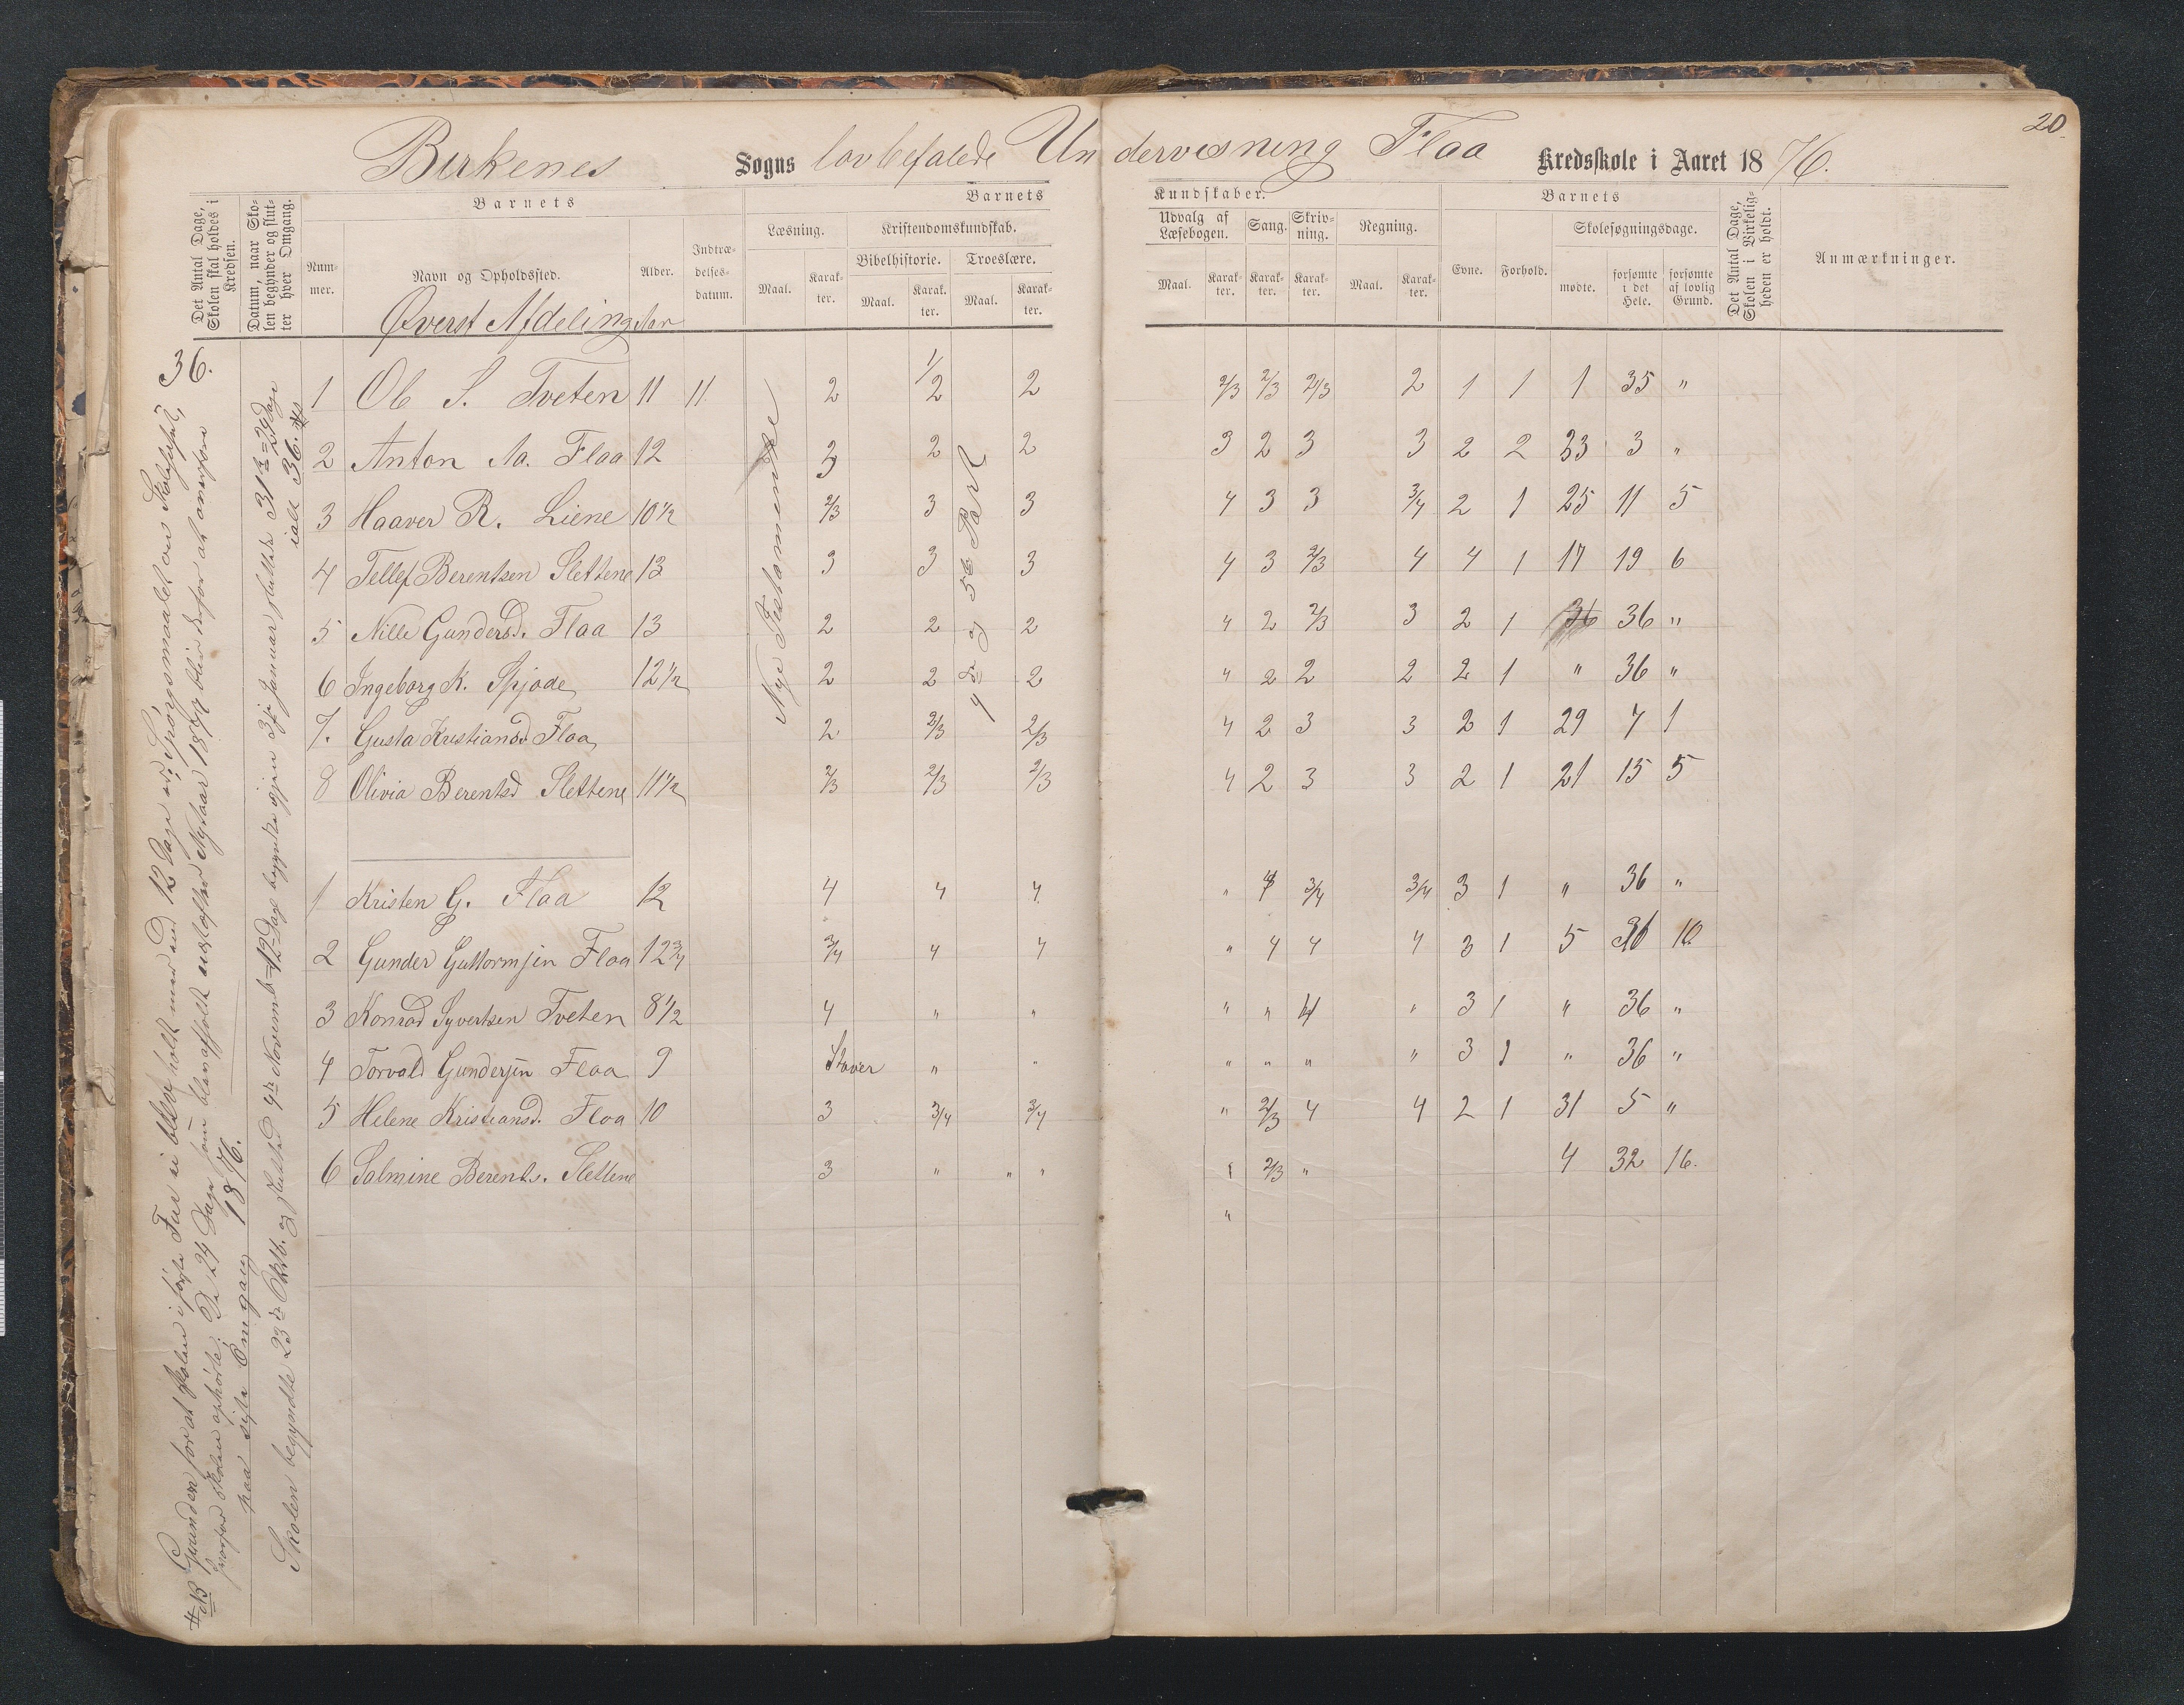 20
Birkenes Sogns lovbefalede Undervisning Flaa Kredsskole i Aaret 1876.
Det Antal Dage, Skolen skal holdes i Kredsen.
Datum, naar Skolen begynder og slutter hver Omgang.
Barnets
Nummer.
Navn og Opholdssted.
Alder.
Indtrædelsesdatum.
Barnets
Læsning.
Maal.
Karakter.
Kristendomskundskab.
Bibelhistorie.
Maal.
Karakter.
Troeslære.
Maal.
Karakter.
Kundskaber.
Udvalg af Læsebogen.
Maal.
Karakter.
Sang.
Karakter.
Skrivning.
Karakter.
Regning.
Maal.
Karakter.
Barnets
Evne.
Forhold.
Skolesøgningsdage.
mødte.
forsømte i det Hele.
forsømte af lovlig Grund.
Det Antal Dage, Skolen i Virkeligheden er holdt.
Anmærkninger.
Øverst Afdeling
36.
1 Ole S. Tveten 11 11 2 1/2 2 2/3 2/3 2/3 2 1 1 1 35 "
2 Anton Aa. Flaa 12 3 2 2 3 2 3 3 2 2 33 3 "
3 Haaver R. Liene 10 1/2 2/3 3 3 4 3 3 3/4 2 1 25 11 5
4 Tellef Berentsen Slettene 13 3 3 3 4 3 2/3 4 4 1 17 19 6
5 Nille Gundersd. Flaa 13 2 2 2 4 2 2/3 3 2 1 36 36 "
6 Ingeborg K. Spjode 12 1/2 2 2 2 4 2 2 2 2 1 " 36 "
7. Gusta Kristiansd Flaa 2 2/3 2/3 4 2 3 3 2 1 29 7 1
8 Olivia Berentsd Slettene 11 1/2 2/3 2/3 2/3 4 2 3 3 2 1 21 15 5
Nye Testamente
4de og 5te Part
1 Kristen G. Flaa 12 4 4 4. " 4 3/4 3/4 3 1 " 36 "
2 Gunder Guttormsen Flaa 12 3/4 3/4 4 4 " 4 4 4 3 1 5 31 10
3 Konrad Syvertsen Tveten 8 1/2 4 " " " " 4 " 3 1 " 36 "
4 Torvald Gundersen Flaa 9 Staver " " " " " " 3 1 " 36 "
5 Helene Kristiansd. Flaa 10 3 3/4 3/4 " 2/3 4 4 2 1 31 5 "
6 Salmine Berents. Slettene 3 " " " " 2/3 " 4 32 16.
"
Skolen begyndte 23de Oktb. og sluttede 4de Novemb = 12 Dage begyndte igjen 3die Januar sluttede 31te = 24 Dage
ialt 36.
NB Grunden for at Skolen i første Fær ei blev holdt med end 12 Dage er, Spørgsmaalet om Skolehuset,
hvorfor Skolen ophørte. De 24 Dage som blev afholdt nu efter Nytaar 1877 bliver derfor at anføre
paa sidste Omegang 1876.